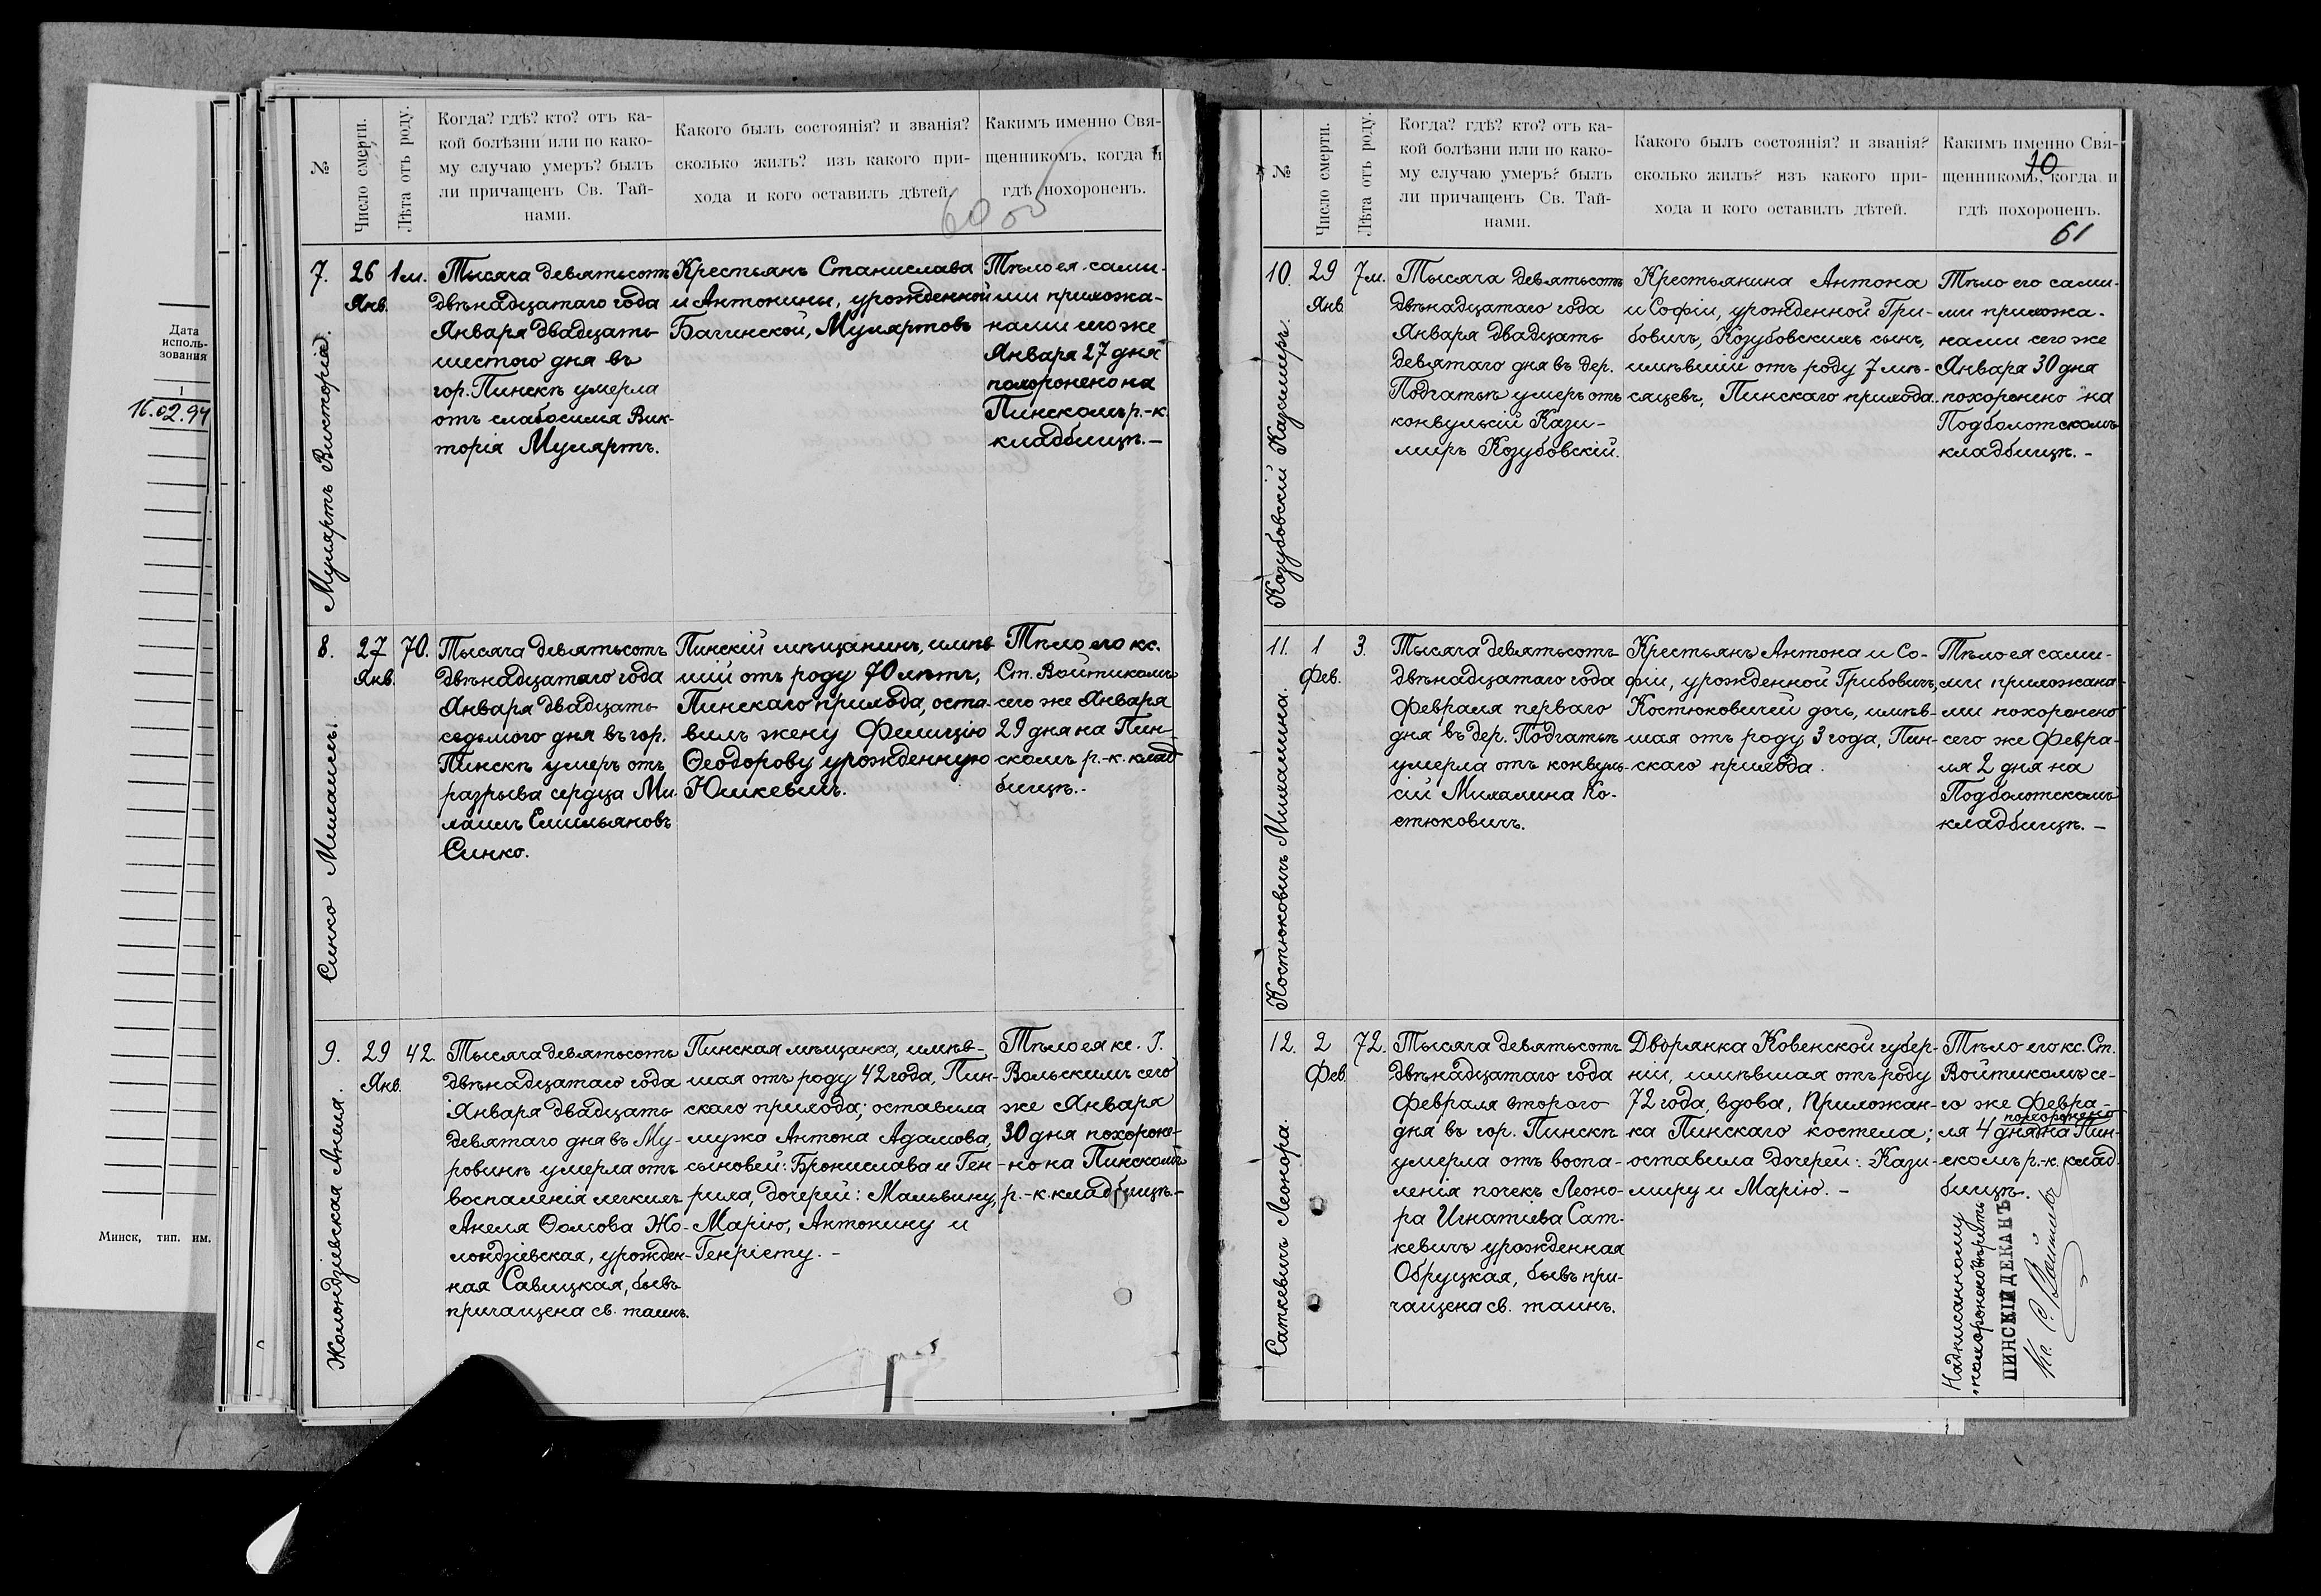 Дата
исполь-
зования
1
16.02.94
Минск, тип. им.
№
Число смерти.
Лѣта отъ роду.
Когда? гдѣ? кто? отъ ка-
кой болѣзни или по како-
му случаю умеръ? былъ
ли причащенъ Св. Тай-
нами.
Какого былъ состоянія? и званія?
сколько жилъ? изъ какого при-
хода и кого оставилъ дѣтей.
Какимъ именно Свя-
щенникомъ, когда и
гдѣ похороненъ.
7.
Муляртъ Викторія.
26
Янв.
1 м.
Тысяча девятьсотъ
двѣнадцатаго года
Января двадцать
шестого дня въ
гор. Пинскѣ умерла
отъ слабосилія Вик-
торія Мулартъ.
Крестьянъ Станислава
и Антонины, урожденной
Багинской, Мулартовъ
Тѣло ея сами-
ми прихожа-
нами сего же
Января 27 дня
похоронено на
Пинскомъ р.-к.
кладбищѣ. —
8.
Синко Михаилъ.
27
Янв.
70.
Тысяча девятьсотъ
двѣнадцатаго года
Января двадцать
седьмого дня въ гор.
Пинскѣ умеръ отъ
разрыва сердца Ми-
хаилъ Емильяновъ
Синко.
Пинскій мѣщанинъ, имѣв
шій отъ роду 70 лѣтъ,
Пинскаго прихода, оста-
вилъ жену Фелицію
Ѳеодорову урожденную
Юшкевичъ.
Тѣло его кс.
Ст. Войтикомъ
сего же Января
29 дня на Пин-
скомъ р.-к. клад
бищѣ.-
9.
Жолондзіевская Анеля.
29
Янв.
42.
Тысяча девятьсотъ
двѣнадцатаго года
Января двадцать
девятаго дня въ Му-
ровинѣ умерла отъ
воспаленія легкихъ
Анеля Ѳомова Жо-
лондзіевская, урожден-
ная Савицкая, бывъ
причащена св. таинъ.
Пинская мѣщанка, имѣв-
шая отъ роду 42 года, Пин-
скаго прихода; оставила
мужа Антона Адамова,
сыновей: Бронислава и Ген-
риха, дочерей: Мальвину,
Марію, Антонину и
Генріету. —
Тѣло ея кс. І.
Вольскимъ сего
же Января
30 дня похороне-
но на Пинскомъ
р.-к. кладбищѣ.-
№
Число смерти.
Лѣта отъ роду.
Когда? гдѣ? кто? отъ ка-
кой болѣзни или по како-
му случаю умеръ? былъ
ли причащенъ Св. Тай-
нами.
Какого былъ состоянія? и званія?
сколько жилъ? изъ какого при-
хода и кого оставилъ дѣтей.
Какимъ именно Свя-
щенникомъ, когда и
гдѣ похороненъ.
70
61
10.
Козубовскій Казимиръ.
29
Янв.
7 м.
Тысяча девятьсотъ
двѣнадцатаго года
Января двадцать
девятаго дня въ дер.
Подгатьѣ умеръ отъ
конвульсій Кази-
миръ Козубовскій.
Крестьянина Антона
и Софіи, урожденной Гри-
бовичъ, Козубовскихъ сынъ,
имѣвшій отъ роду 7 мѣ-
сяцевъ, Пинскаго прихода.
Тѣло его сами-
ми прихожа-
нами сего же
Января 30 дня
похоронено на
Подболотскомъ
кладбищѣ. -
11.
Костюковичъ Михалина.
1
Фев.
3.
Тысяча девятьсотъ
двѣнадцатаго года
Февраля перваго
дня въ дер. Подгатьѣ
умерла отъ конвуль-
сій Михалина Ко-
стюковичъ.
Крестьянъ Антона и Со-
фіи, урожденной Грибовичъ,
Костюковичей дочь, имѣв-
шая отъ роду 3 года, Пин-
скаго прихода.
Тѣло ея сами-
ми прихожана-
ми похоронено
сего же Февра-
ля 2 дня на
Подболотскомъ
кладбищѣ. —
12.
Саткевичъ Леонора.
2
Фев.
72.
Тысяча девятьсотъ
двѣнадцатаго года
Февраля второго
дня въ гор. Пинскѣ
умерла отъ воспа-
ленія почекъ Леоно-
ра Игнатіева Сат-
кевичъ урожденная
Обруцкая, бывъ при-
чащена св. таинъ.
Дворянка Ковенской губер-
ніи, имѣвшая отъ роду
72 года, вдова, прихожан-
ка Пинскаго костела;
оставила дочерей: Кази-
миру и Марію. —
Тѣло его кс. Ст.
Войтикомъ се-
го же Февра-
похоронено
ля 4 дня на Пин-
скомъ р.-к. клад
бищѣ.
Надписанному
„похоронено" вѣрить
ПИНСКІЙ ДЕКАНЪ
Кс. С. Войтикъ